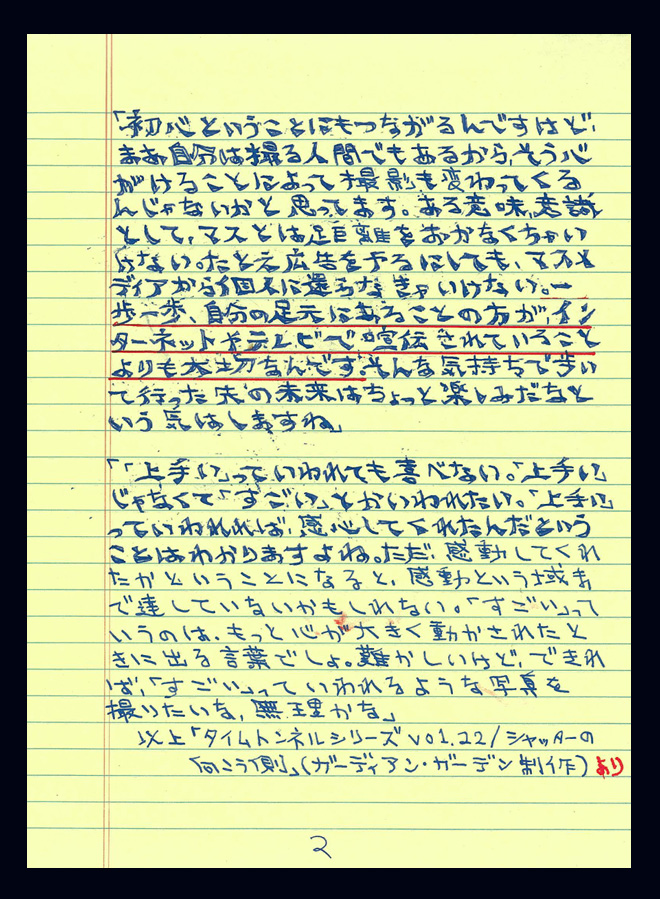 「初心ということにもつながるんですけど、
まあ自分は撮る人間でもあるから、そう心
がけることによって撮影も変わってくる
んじゃないかと思ってます。ある意味、意識
として、マスとは足距離をおかなくちゃい
けない。たとえ広告をやるにしても、マスメ
ディアから個人に還らなきゃいけない。一
歩一歩、自分の足元にあることの方が、イン
ターネットやテレビで宣伝されていること
よりも大切なんです。そんな気持ちで歩い
て行った先の未来はちょっと楽しみだなと
いう気はしますね」
「「上手い」っていわれても喜べない。「上手い」
じゃなくて「すごい」とかいわれたい。「上手い」
っていわれれば、感心してくれたんだという
ことはわかりますよね。ただ、感動してくれ
たかということになると、感動という域ま
で達していないかもしれない。「すごい」って
いうのは、もっと心が大きく動かされたと
きに出る言葉でしょ。難かしいけど、できれ
ば、「すごい」っていわれるような写真を
撮りたいな、無理かな」
以上「タイムトンネルシリーズvol.22/シャッターの
向こう側」(ガーディアン・ガーデン制作)より
2